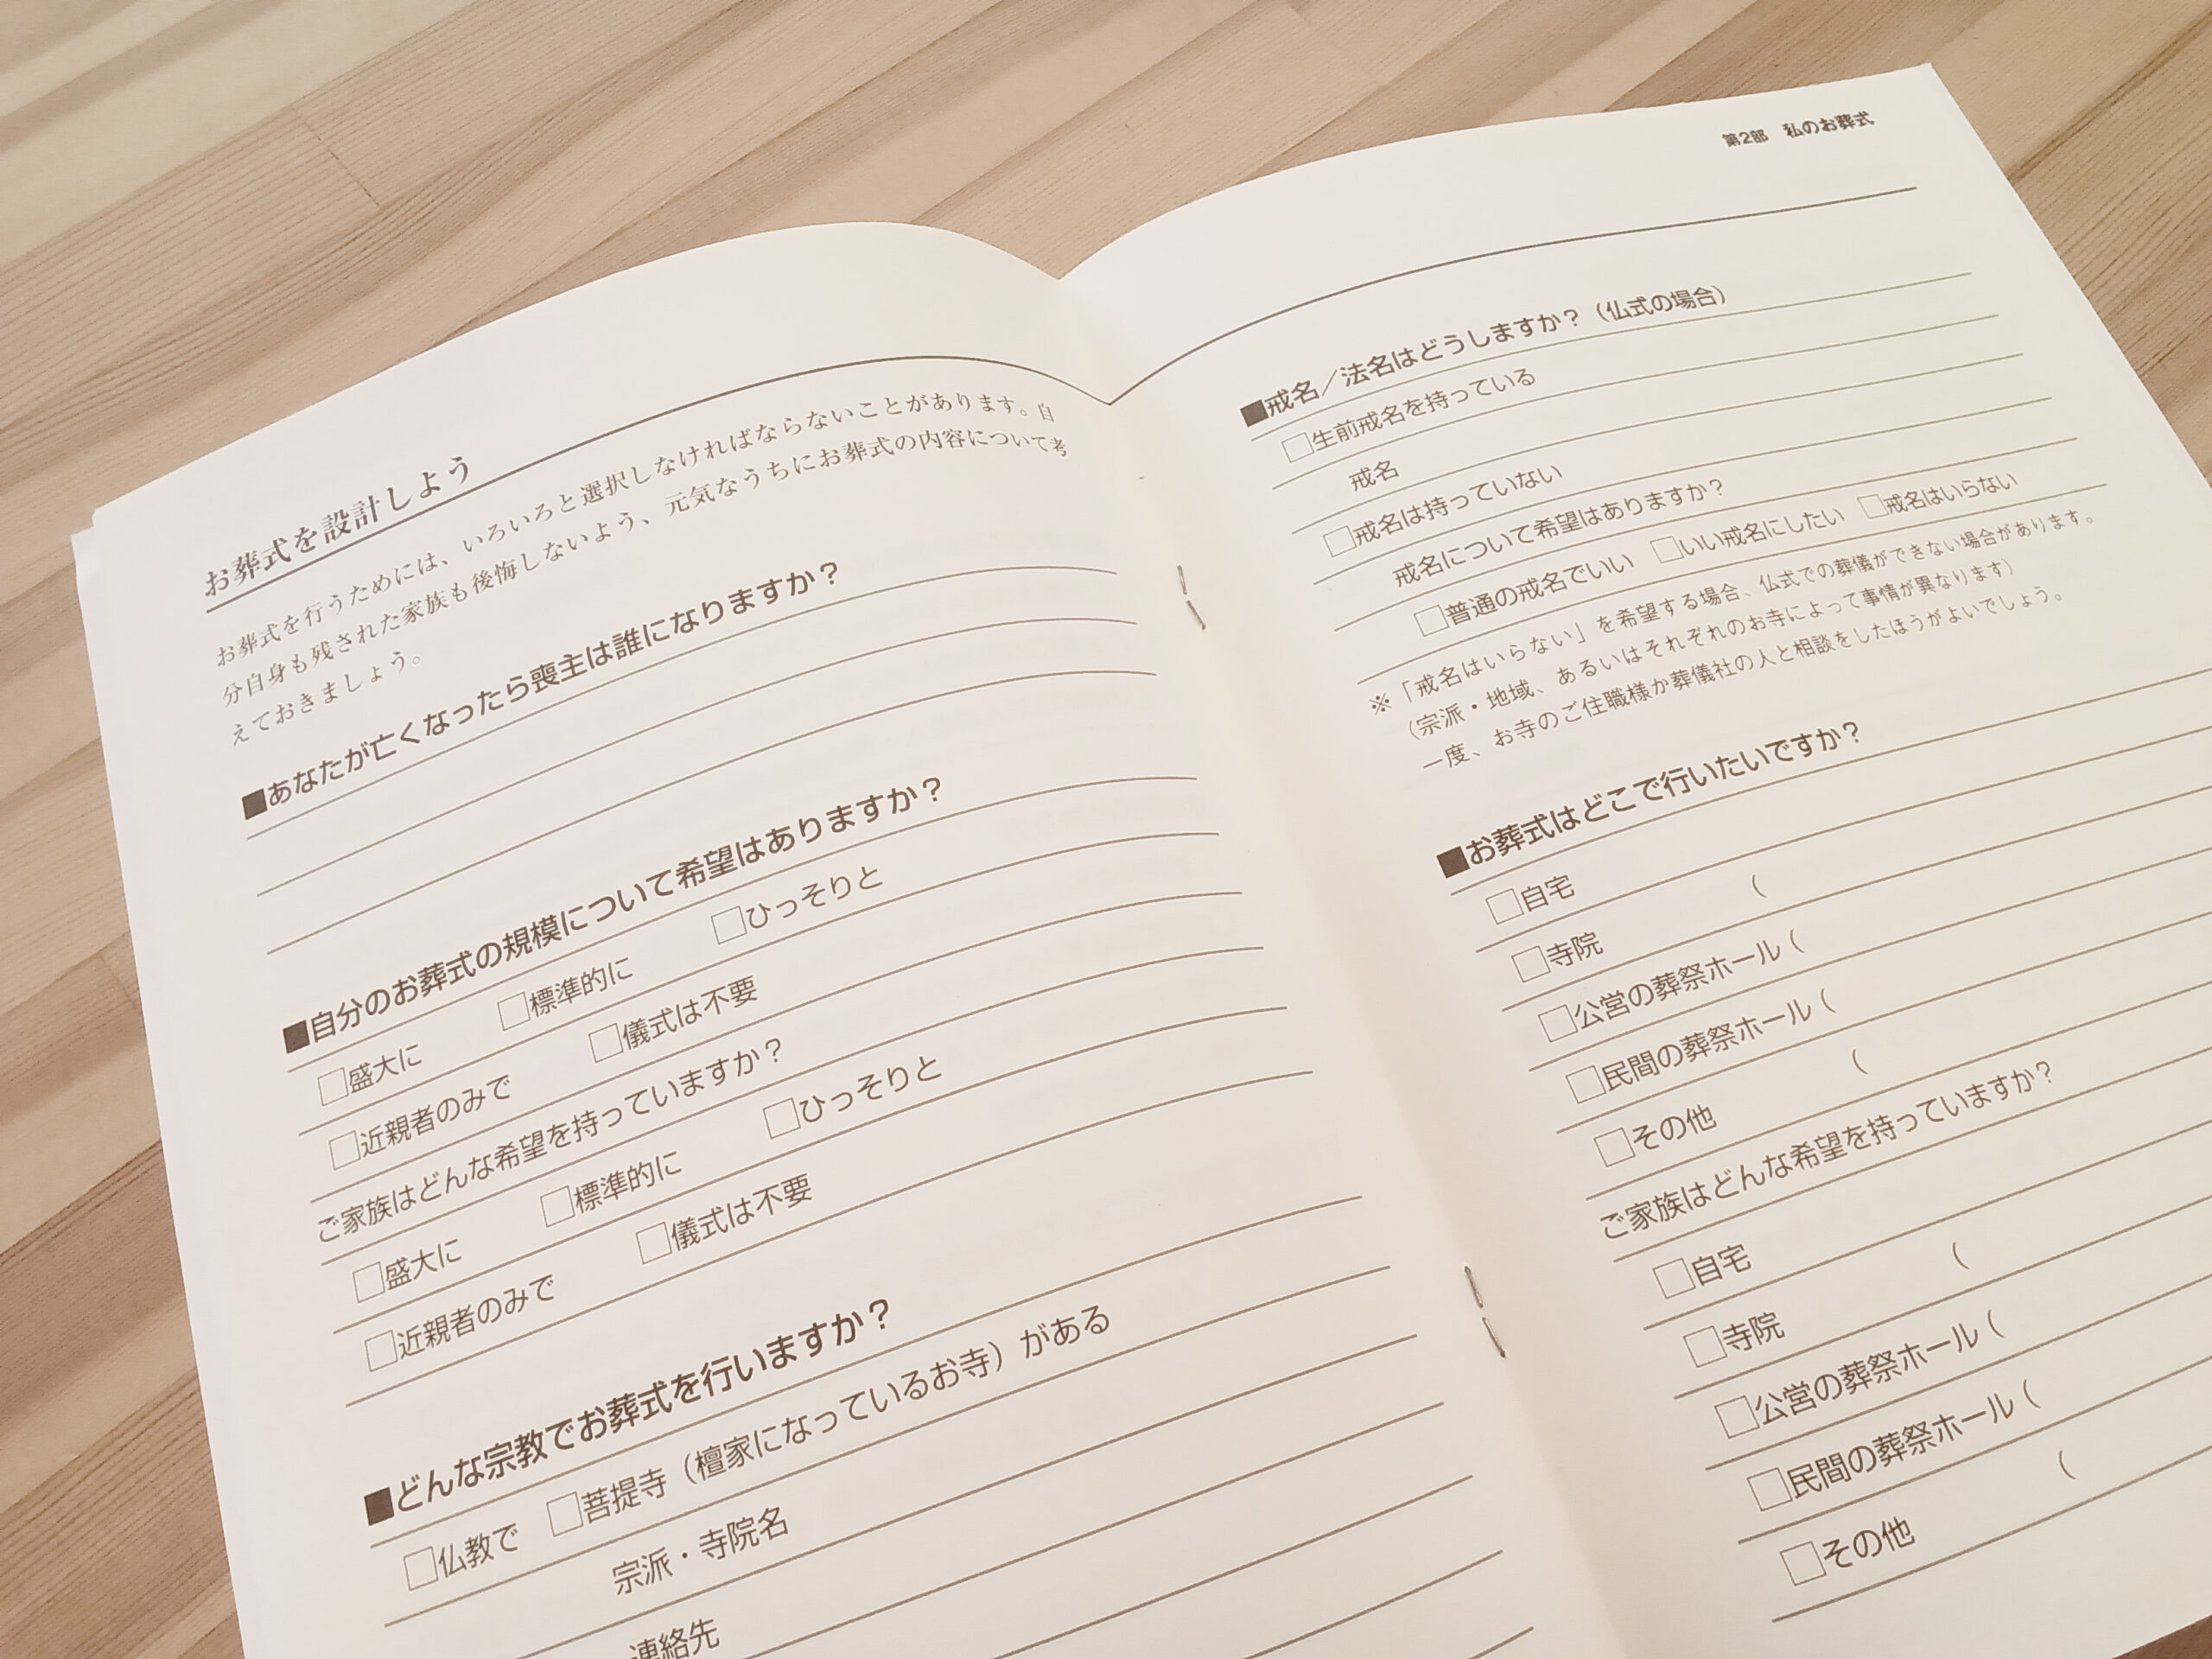 お葬式を設計しよう
お葬式を行うためには、いろいろと選択しなければならないことがあります。自
分自身も残された家族も後悔しないよう、元気なうちにお葬式の内容について考
えておきましょう。
■あなたが亡くなったら喪主は誰になりますか？
■自分のお葬式の規模について希望はありますか？
□盛大に　□標準的に　□ひっそりと
□近親者のみで　□儀式は不要
ご家族はどんな希望を持っていますか？
□盛大に　□標準的に　□ひっそりと
□近親者のみで　□儀式は不要
■どんな宗教でお葬式を行いますか？
□仏教で　□菩提寺（檀家になっているお寺）がある
宗派・寺院名
連絡先
第2部　私のお葬式
■戒名／法名はどうしますか？（仏式の場合）
□生前戒名を持っている
戒名
□戒名は持っていない
戒名について希望はありますか？
□普通の戒名でいい　□いい戒名にしたい　□戒名はいらない
※「戒名はいらない」を希望する場合、仏式での葬儀ができない場合があります。
（宗派・地域、あるいはそれぞれのお寺によって事情が異なります）
一度、お寺のご住職様か葬儀社の人と相談をしたほうがよいでしょう。
■お葬式はどこで行いたいですか？
□自宅
□寺院　（
□公営の葬祭ホール（
□民間の葬祭ホール（
□その他　（
ご家族はどんな希望を持っていますか？
□自宅
□寺院　（
□公営の葬祭ホール（
□民間の葬祭ホール（
□その他　（